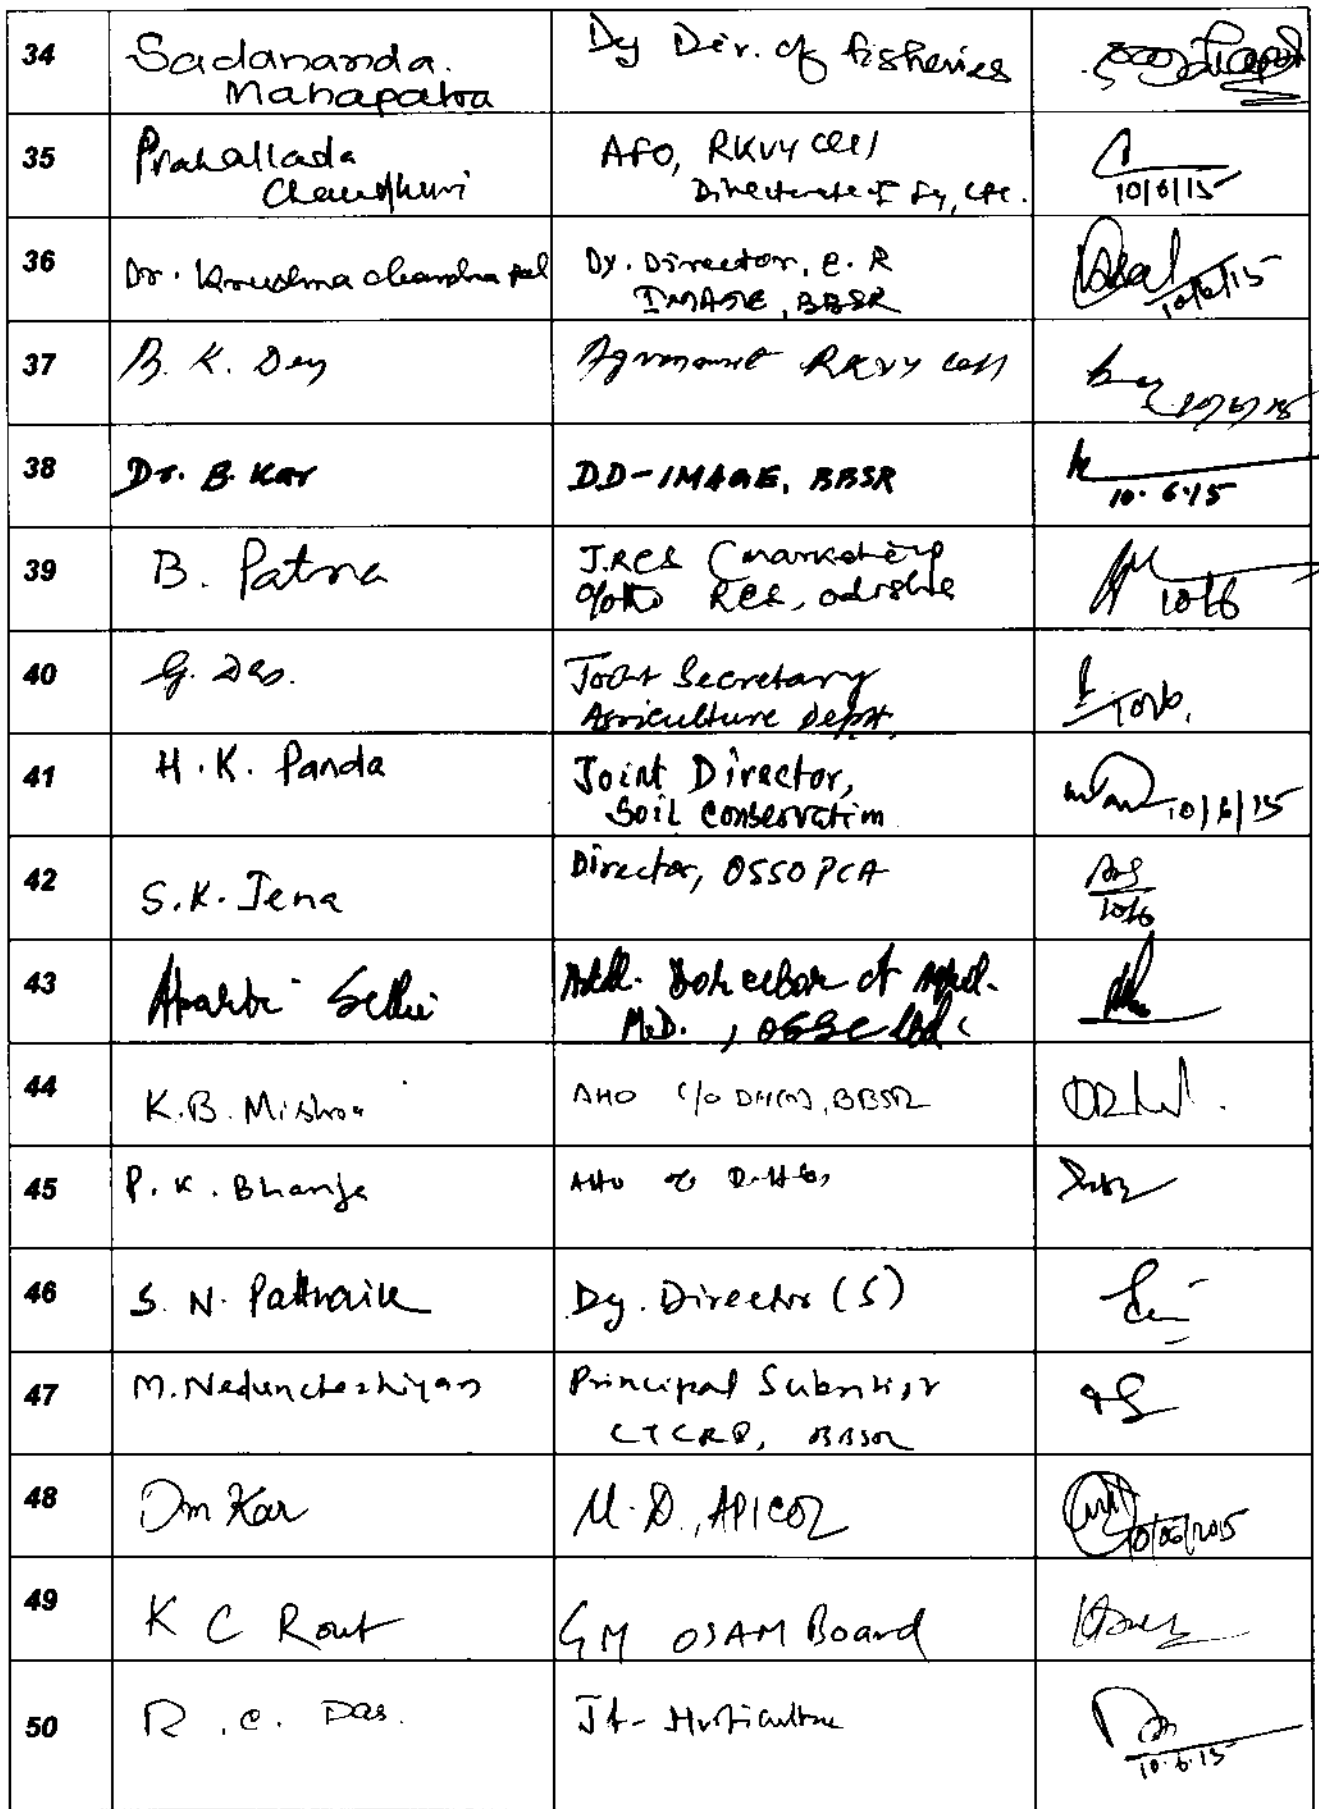 34 Sadananda. Dy Dir. of fisheries
Mahapatra
35 Prahallada AFO, RKVY Cell
Chaudhuri Directorate of Fy, CTC.
10/6/15
36 Dr. Krushna chandra pal Dy. Director, E. R
IMAGE, BBSR
10/6/15
37 B. K. Dey Agronomist RKVY Cell
10/6/15
38 Dr. B. Kar DD-IMAGE, BBSR
10.6.15
39 B. Patra J.RCS (marketing
RCS, odisha
10/6
40 G. Das. Joint Secretary
Agriculture Dept.
10/6.
41 H.K. Panda Joint Director,
Soil Conservation
10/6/15
42 S.K. Jena Director, OSSOPCA
10/6
43 Sethi Addl.
M.D., OSSC Ltd.
44 K.B. Mishra AHO C/o DH(O), BBSR
45 P.K. Bhanja AHO
46 S. N. Pattnaik Dy. Director (S)
47 M. Nedunchezhiyan Principal Scientist
CTCRI, BBSR
48 Om Kar M.D., APICOL
10/06/2015
49 K C Rout GM OSAM Board
50 R.C. Das. Jt- Horticulture
10.6.15